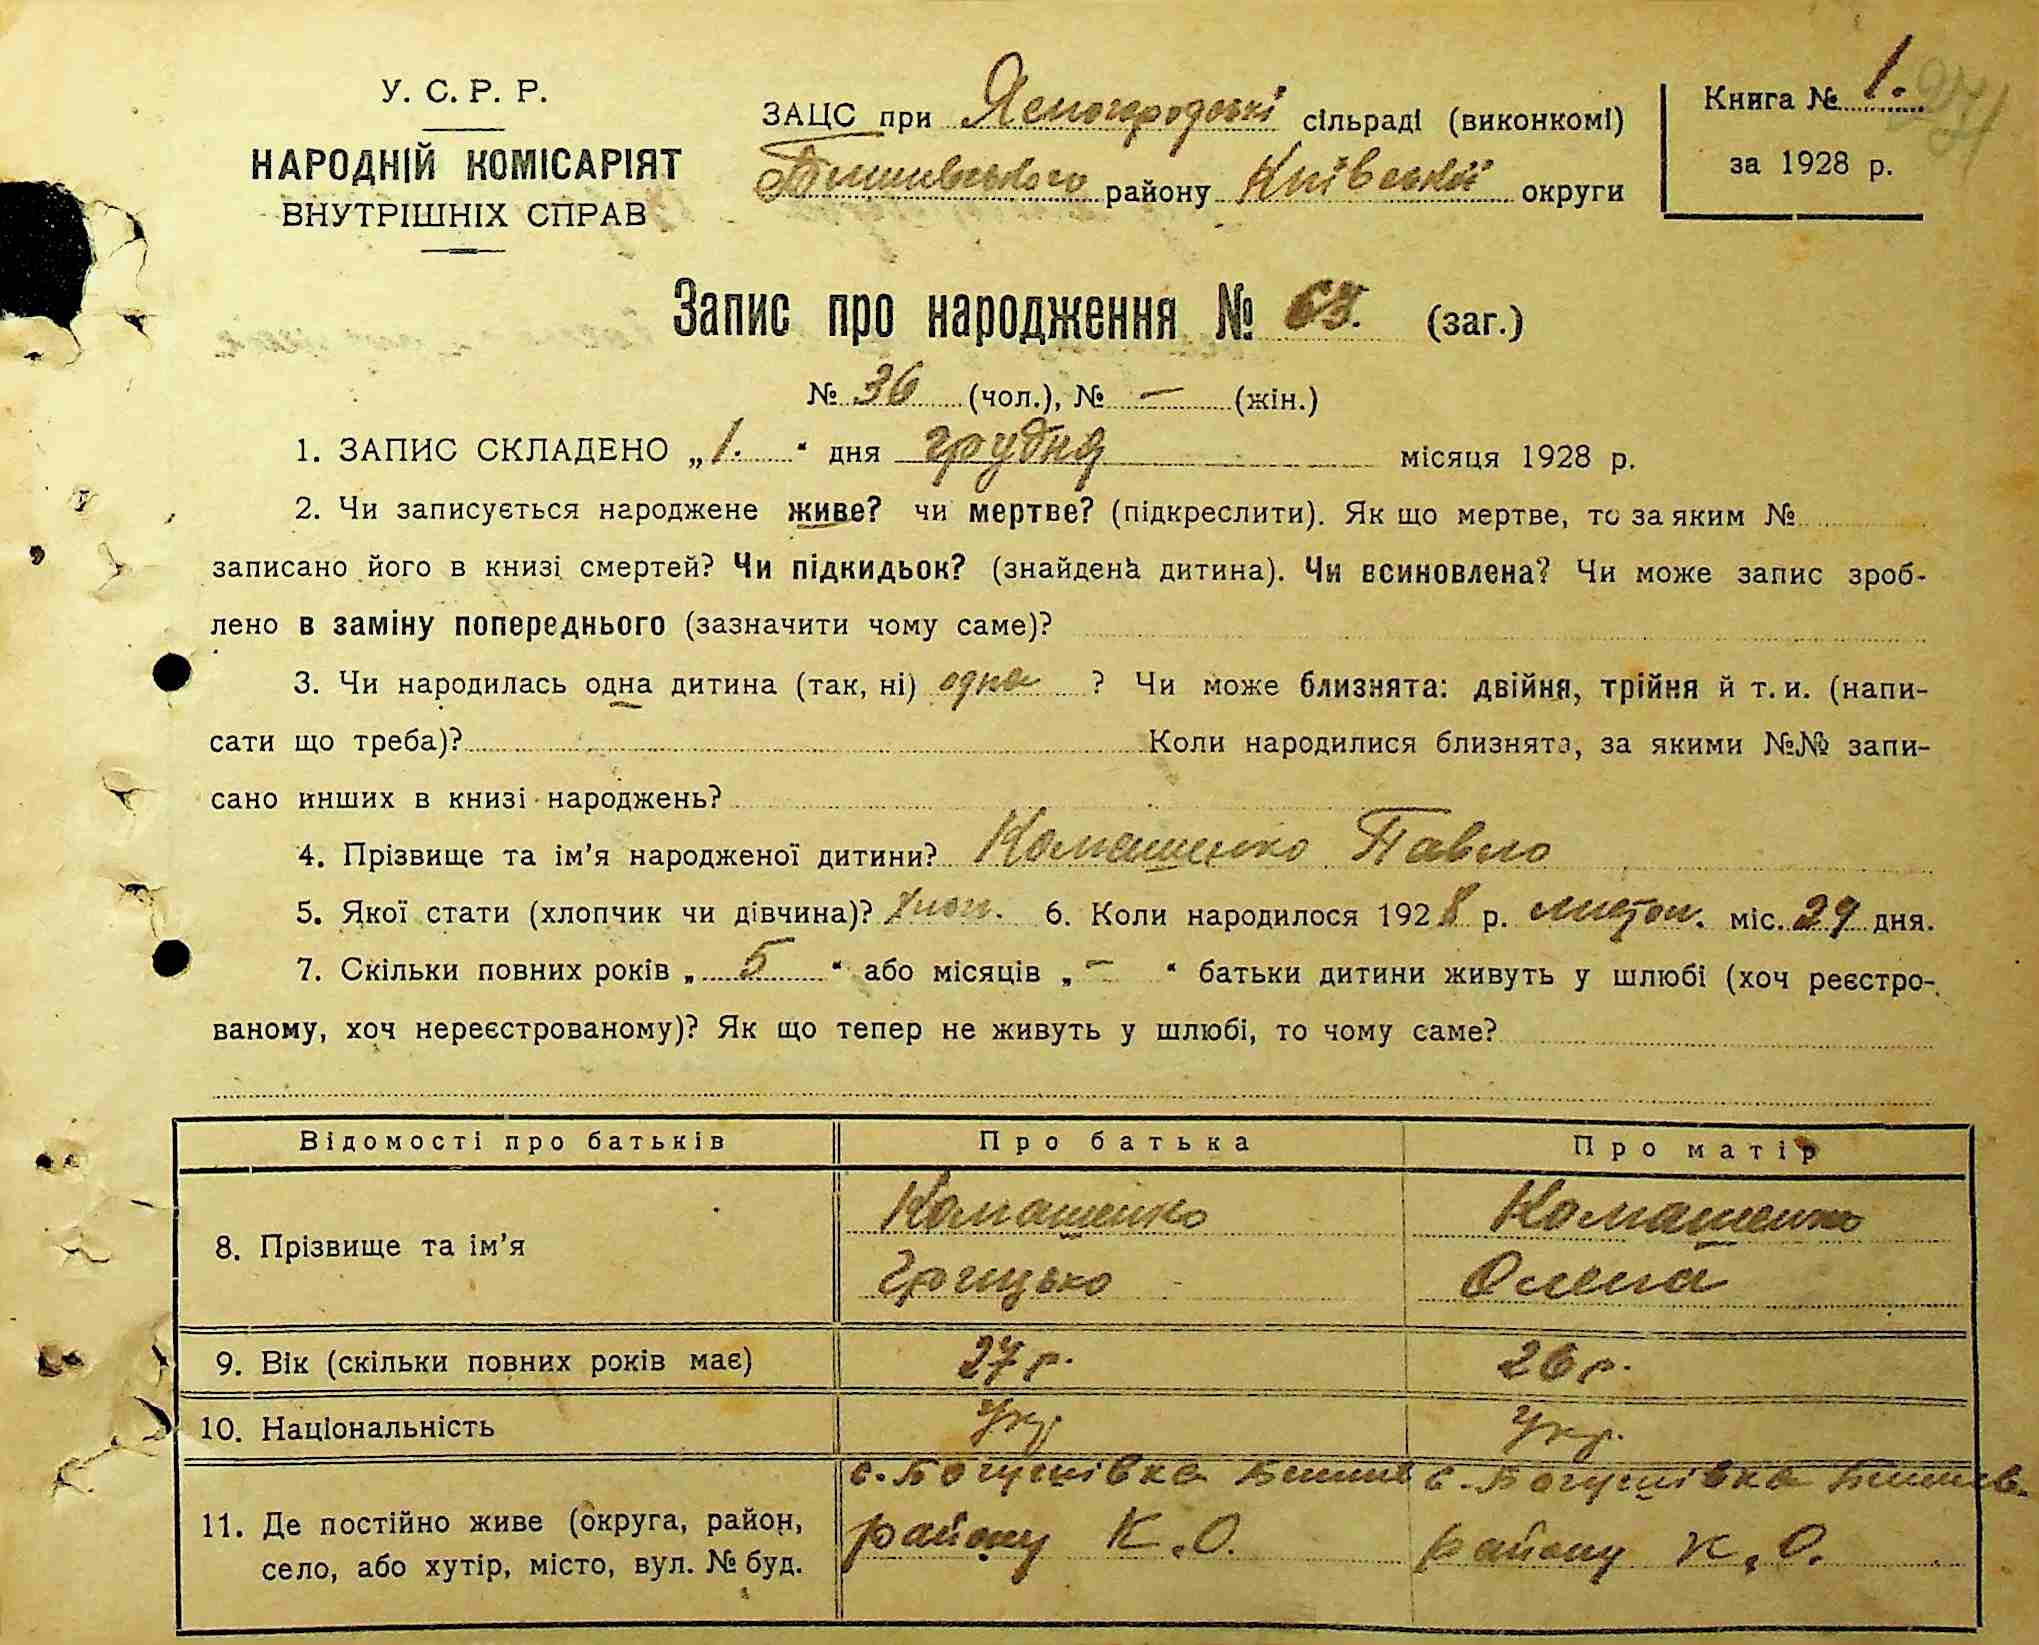 У. С. Р. Р.
НАРОДНІЙ КОМІСАРІЯТ
ВНУТРІШНІХ СПРАВ
ЗАЦС при Ясногородські сільраді (виконкомі)
Бишівського району Київській округи
Книга № 1.
за 1928 р.
Запис про народження № (заг.)
№ 36 (чол.), № — (жін.)
1. ЗАПИС СКЛАДЕНО „1.“ дня грудня місяця 1928 р.
2. Чи записується народжене живе? чи мертве? (підкреслити). Як що мертве, то за яким №
записано його в книзі смертей? Чи підкидьок? (знайдена дитина). Чи всиновлена? Чи може запис зроб-
лено в заміну попереднього (зазначити чому саме)?
3. Чи народилась одна дитина (так, ні) одна ? Чи може близнята: двійня, трійня й т. и. (напи-
сати що треба)? Коли народилися близнята, за якими №№ запи-
сано инших в книзі народжень?
4. Прізвище та ім’я народженої дитини? Комашенко Павло
5. Якої стати (хлопчик чи дівчина)? Хлоп. 6. Коли народилося 1928 р. листоп. міс. 29 дня.
7. Скільки повних років „ 5 “ або місяців „ — “ батьки дитини живуть у шлюбі (хоч реєстро-
ваному, хоч нереєстрованому)? Як що тепер не живуть у шлюбі, то чому саме?
Відомості про батьків Про батька Про матір
8. Прізвище та ім’я Комашенко Грицько Комашенко Олена
9. Вік (скільки повних років має) 27 р. 26 р.
10. Національність Укр. Укр.
11. Де постійно живе (округа, район, село, або хутір, місто, вул. № буд. с. Богушівка Бишів району К. О. с. Богушівка Бишів. району К. О.